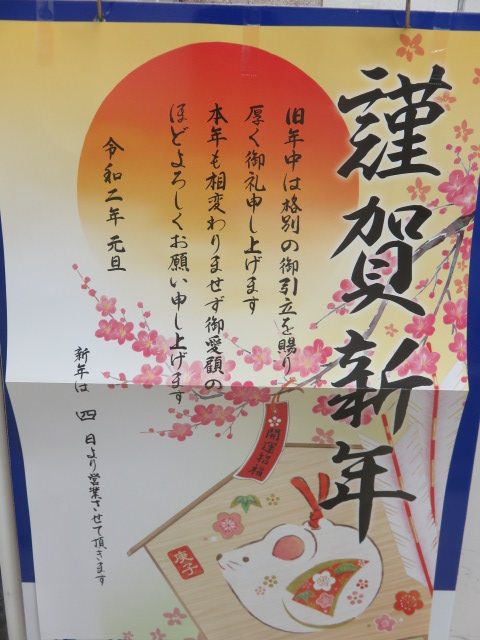 謹賀新年
旧年中は格別の御引立を賜り
厚く御礼申し上げます
本年も相変わりませず御愛顧の
ほどよろしくお願い申し上げます
令和二年 元旦
新年は 四 日より営業させて頂きます
開運招福
庚子